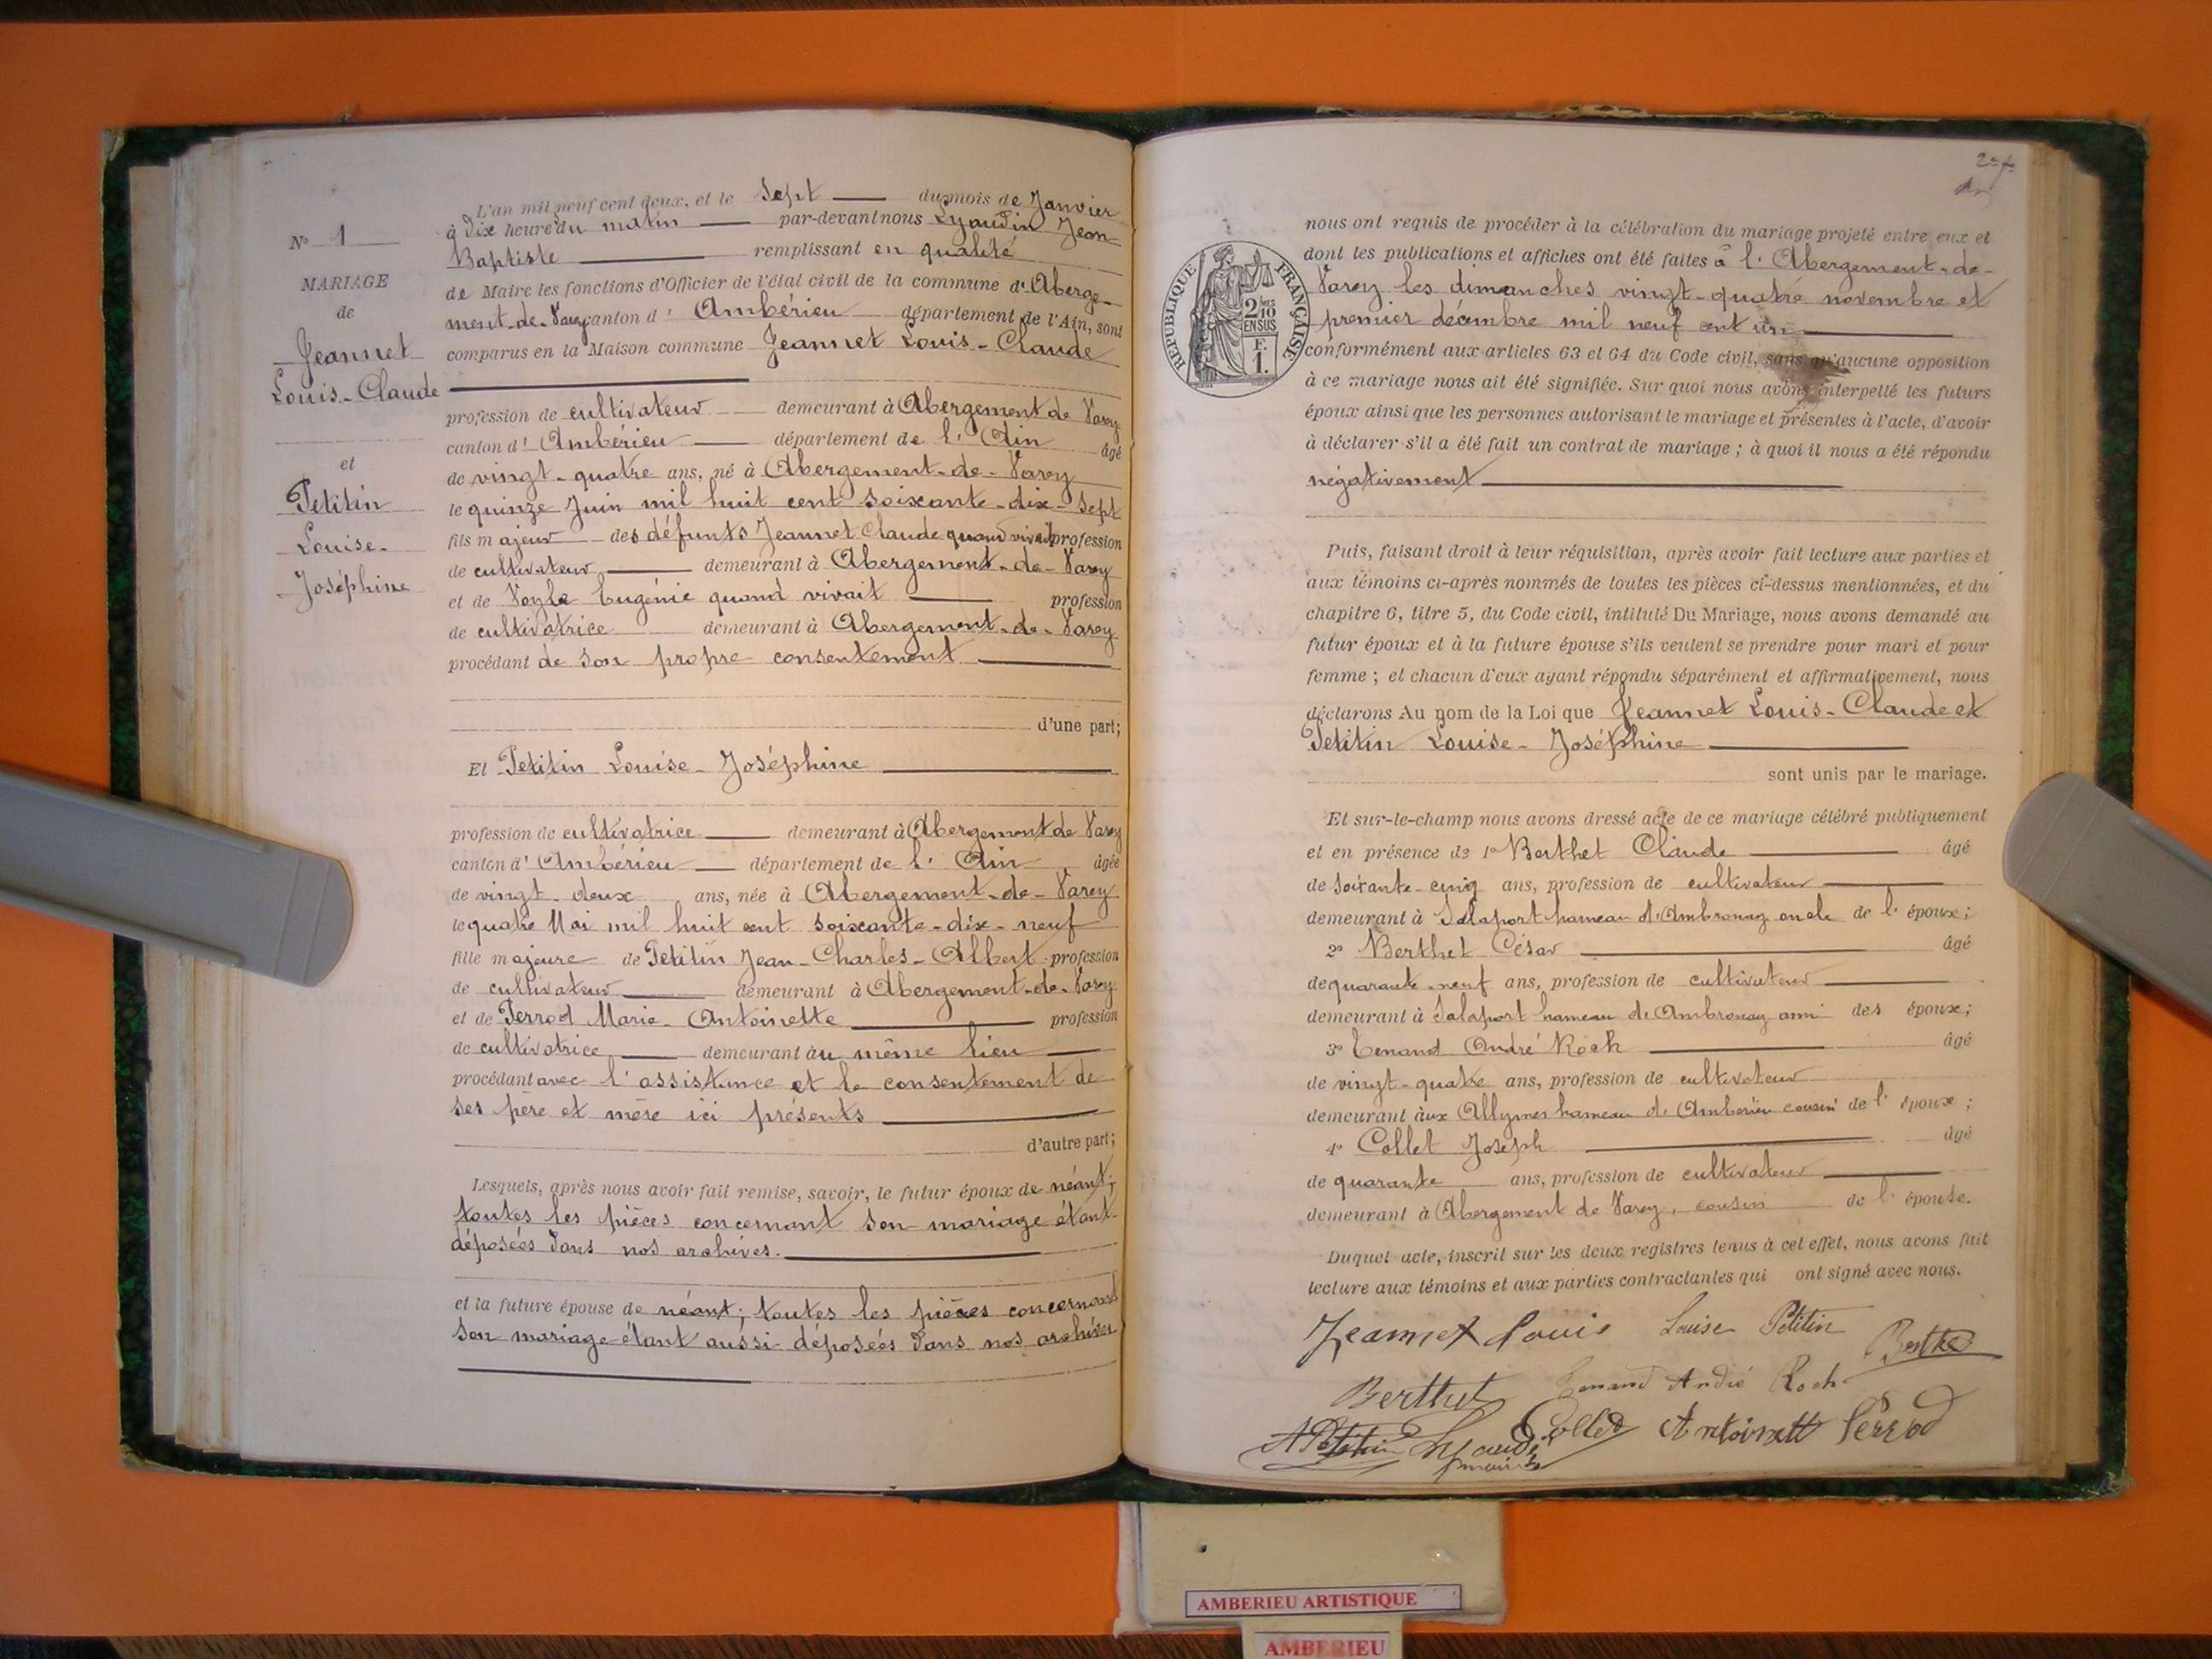 N° 1
MARIAGE
de
Jeannet
Louis-Claude
et
Petitin
Louise-
Joséphine
L'an mil neuf cent deux, et le sept du mois de Janvier
à dix heure du matin par-devant nous Lyaudin Jean
Baptiste remplissant en qualité
de Maire les fonctions d'Officier de l'état civil de la commune d'Aberge-
ment-de-Varey canton d'Ambérieu département de l'Ain, sont
comparus en la Maison commune Jeannet Louis-Claude
profession de cultivateur demeurant à Abergement de Varey
canton d'Ambérieu département de l'Ain âgé
de vingt-quatre ans, né à Abergement-de-Varey
le quinze Juin mil huit cent soixante-dix-sept
fils majeur des défunts Jeannet Claude quand vivait profession
de cultivateur demeurant à Abergement-de-Varey
et de Eugénie quand vivait profession
de cultivatrice demeurant à Abergement-de-Varey
procédant de son propre consentement
d'une part;
Et Petitin Louise-Joséphine
profession de cultivatrice demeurant à Abergement de Varey
canton d'Ambérieu département de l'Ain âgée
de vingt-deux ans, née à Abergement-de-Varey
le quatre Mai mil huit cent soixante-dix-neuf
fille majeure de Petitin Jean-Charles-Albert profession
de cultivateur demeurant à Abergement-de-Varey
et de Perrod Marie-Antoinette profession
de cultivatrice demeurant àu même lieu
procédant avec l'assistance et le consentement de
ses père et mère ici présents
d'autre part;
Lesquels, après nous avoir fait remise, savoir, le futur époux de néant;
toutes les pièces concernant son mariage étant
déposées dans nos archives.
et la future épouse de néant; toutes les pièces concernant
son mariage étant aussi déposées dans nos archives
2e
REPUBLIQUE FRANÇAISE
2/10 EN SUS
F. 1.
nous ont requis de procéder à la célébration du mariage projeté entre eux et
dont les publications et affiches ont été faites à l'Abergement-de-
Varey les dimanches vingt-quatre novembre et
premier décembre mil neuf cent un
conformément aux articles 63 et 64 du Code civil, sans qu'aucune opposition
à ce mariage nous ait été signifiée. Sur quoi nous avons interpellé les futurs
époux ainsi que les personnes autorisant le mariage et présentes à l'acte, d'avoir
à déclarer s'il a été fait un contrat de mariage ; à quoi il nous a été répondu
négativement
Puis, faisant droit à leur réquisition, après avoir fait lecture aux parties et
aux témoins ci-après nommés de toutes les pièces ci-dessus mentionnées, et du
chapitre 6, titre 5, du Code civil, intitulé Du Mariage, nous avons demandé au
futur époux et à la future épouse s'ils veulent se prendre pour mari et pour
femme ; et chacun d'eux ayant répondu séparément et affirmativement, nous
déclarons Au nom de la Loi que Jeannet Louis-Claude et
Petitin Louise-Joséphine
sont unis par le mariage.
Et sur-le-champ nous avons dressé acte de ce mariage célébré publiquement
et en présence de 1° Berthet Claude âgé
de soixante-cinq ans, profession de cultivateur
demeurant à Salaport hameau d'Ambronay oncle de l'époux;
2° Berthet César âgé
de quarante-neuf ans, profession de cultivateur
demeurant à Salaport hameau d'Ambronay ami des époux;
3° Tenand André Roch âgé
de vingt-quatre ans, profession de cultivateur
demeurant àux Allymes hameau d'Ambérieu cousin de l'époux ;
4° Collet Joseph âgé
de quarante ans, profession de cultivateur
demeurant à Abergement de Varey, cousin de l'épouse.
Duquel acte, inscrit sur les deux registres tenus à cet effet, nous avons fait
lecture aux témoins et aux parties contractantes qui ont signé avec nous.
Jeannet Louis Louise Petitin
Berthet
Berthet Tenand André Roch
A Petitin Lyaudin Collet Antoinett Perrod
maire
AMBERIEU ARTISTIQUE
AMBERIEU